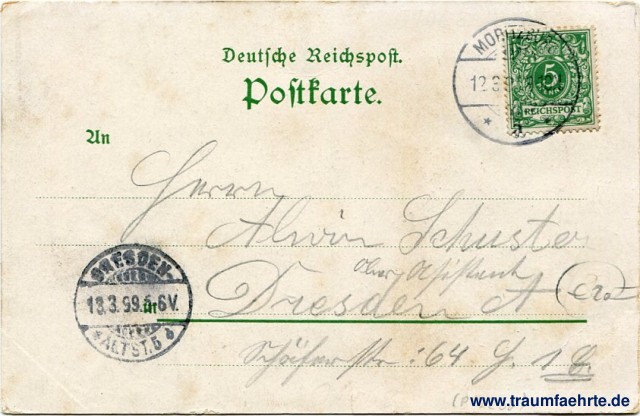 Deutsche Reichspost.
Postkarte.
MORITZ
12.3
5
REICHSPOST
An
Herrn
Alwin Schuster
Ober Assistent
Dresden A
in
DRESDEN-
13.3.99.5-6V.
*ALTST.5 b
Schäferstr: 64 G. 1
www.traumfaehrte.de